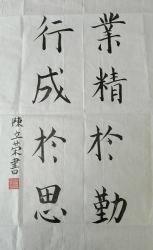 業精於勤
行成於思
陳立榮書